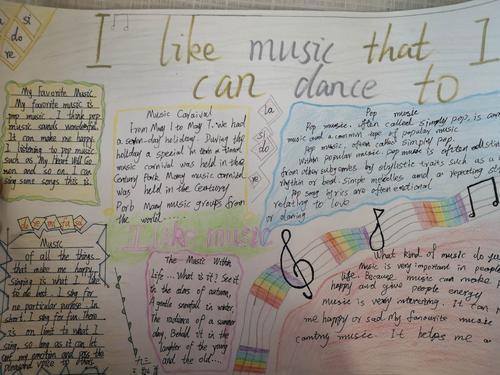 I like music that I
can dance to
si
do
re
My Favorite Music
My favorite music is
pop music. I think pop
music sounds wonderful.
It can make me happy.
I listening to pop music
such as My Heart Will Go
men and so on. I can
sing some songs this is
Music Carnival
From May 1 to May 7, we had
a seven-day holiday. During the
holiday a special
music carnival was held in the
Century Park. Many music carnival
was held in the Century
Park Many music groups from
the world......
la
si
do
re
Pop music
Pop music, often called simply pop, is con
music and a common type of popular music
Pop music, often called simply pop
Within popular music Pop music is often
from other subgenres by stylistic traits such as a
rhythm or beat. Simple melodies and a repeating st
Pop song lyrics are often emotional
relating to love
or dancing
I like music
do re mi fa so
Music
of all the things
that make me happy,
singing is what I like
to do best. I sing for
no particular purpose. In
short, I sing for fun. There
is on limit to what I
sing, so long as it can let
out my emotion and pass the
pleasant voice to others
The Music Within
Life... What is it? See it
in the colors of autumn,
A gentle snowfall in winter,
The radiance of a summer
day, Behold it in the
laughter of the young
and the old....
九三
What kind of music do you
Music is very important in people
life. Because music can make
happy and give people energy
Music is very interesting. It can m
me happy or sad. My favourite music
caming music. It helps me a